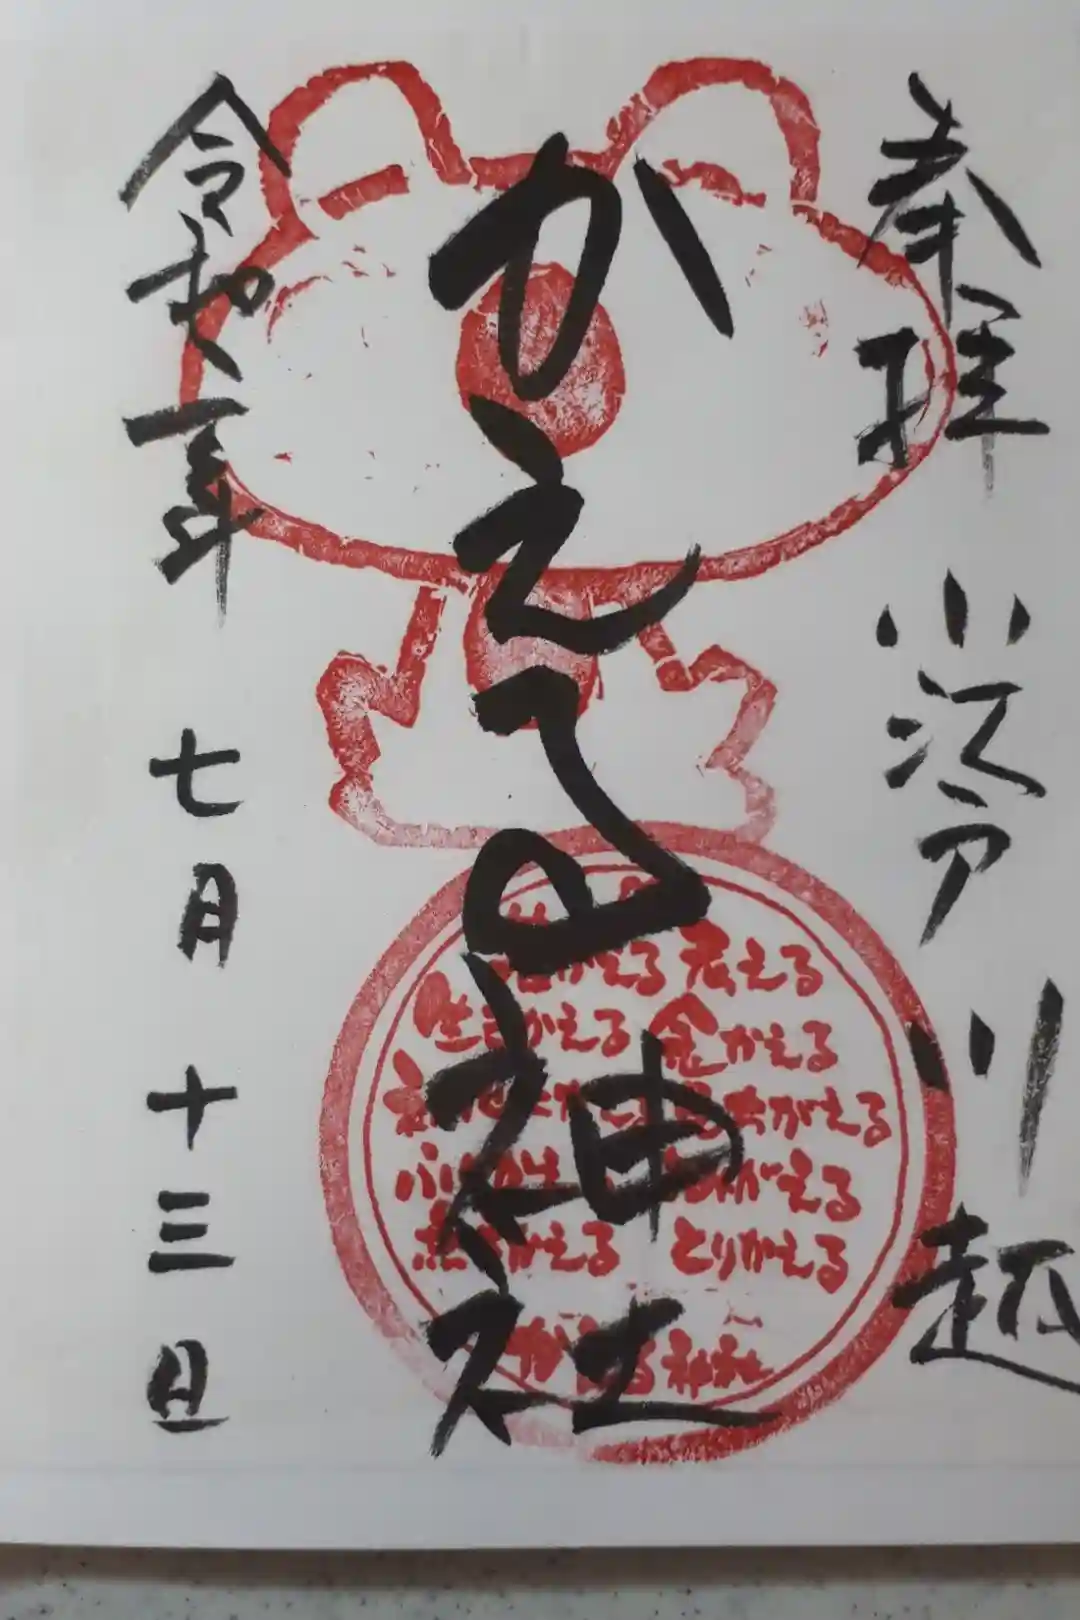 奉拝
小江戸
川越
かえる神社
令和二年
七月
十三日
かえる
考える
生きかえる
金かえる
がえる
かえる
とりかえる
神社